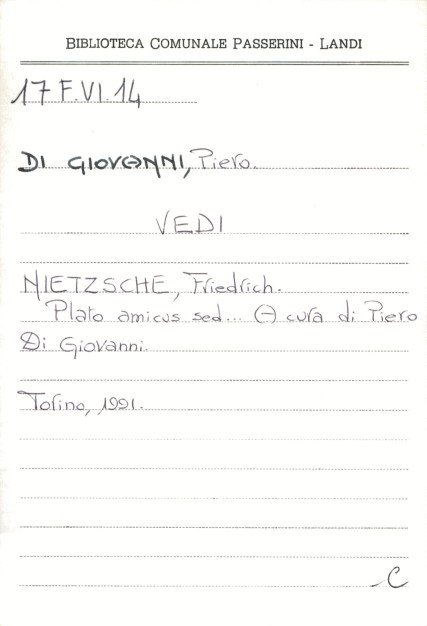 BIBLIOTECA COMUNALE PASSERINI - LANDI
17 F.VI.14
DI GIOVANNI, Piero.
VEDI
NIETZSCHE, Friedrich.
Plato amicus sed... A cura di Piero
Di Giovanni.
Torino, 1991.
C